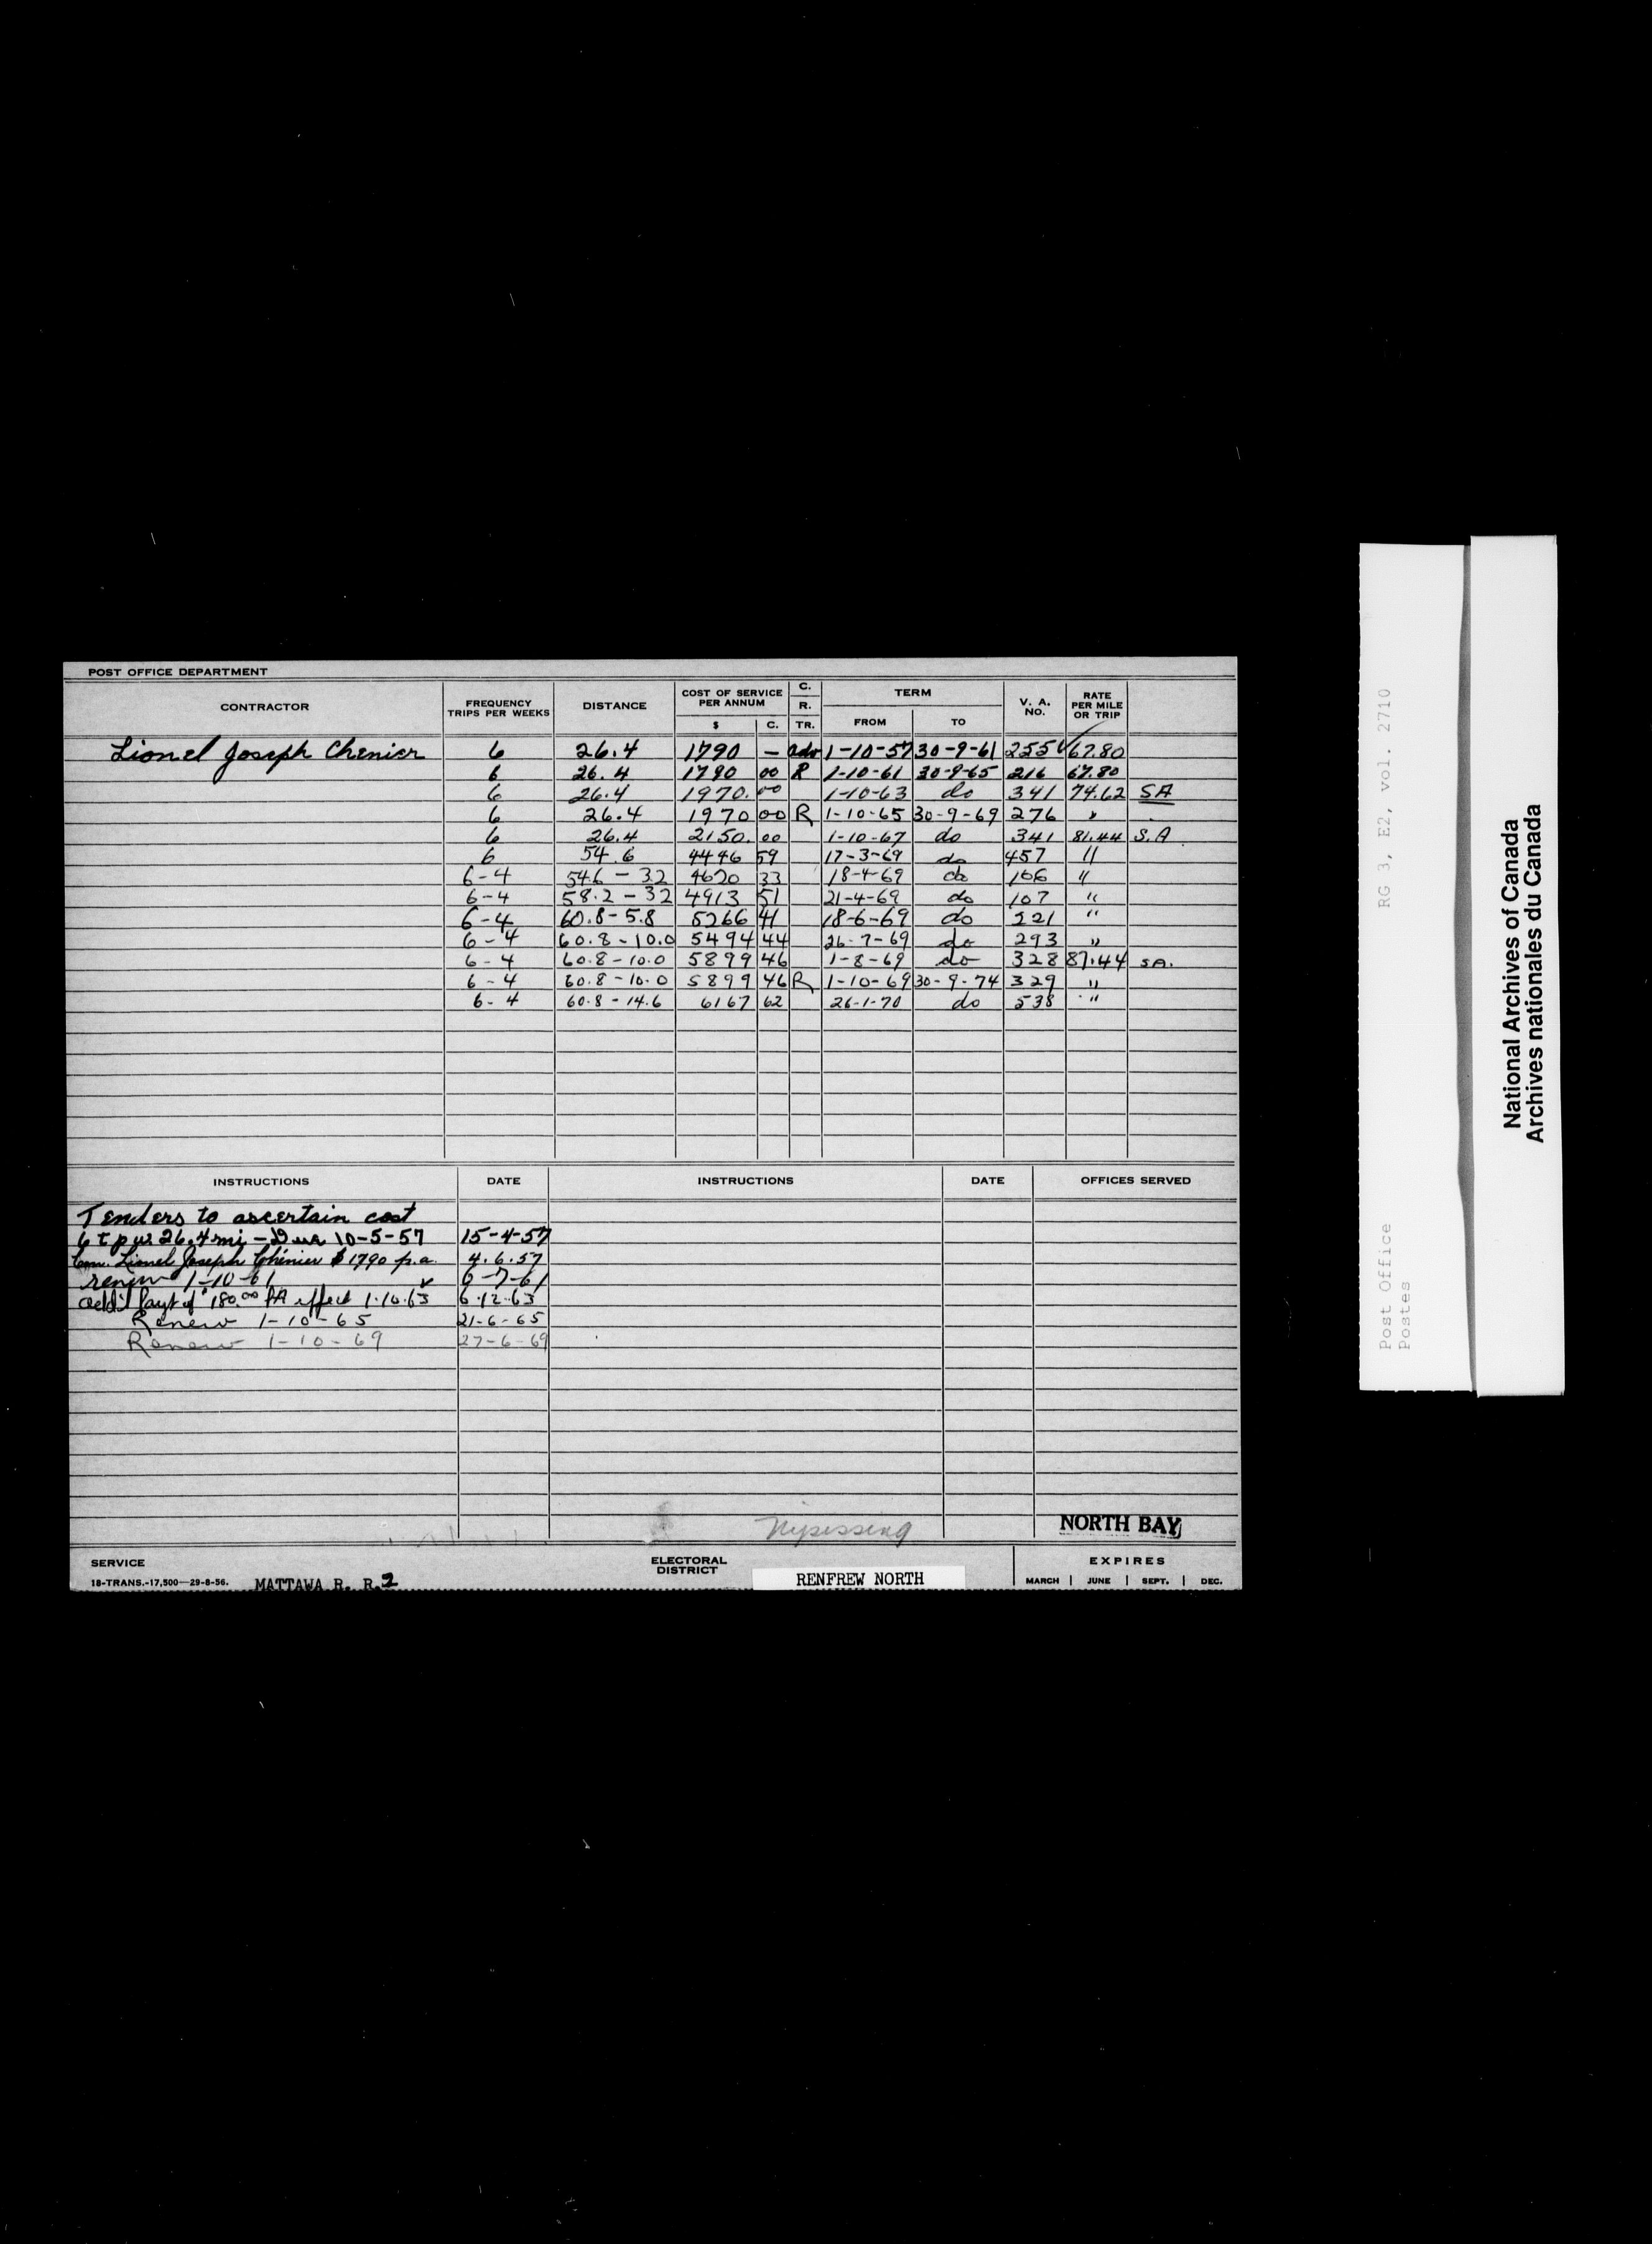 POST OFFICE DEPARTMENT
CONTRACTOR FREQUENCY TRIPS PER WEEKS DISTANCE COST OF SERVICE PER ANNUM $ C. C. R. TR. TERM FROM TO V. A. NO. RATE PER MILE OR TRIP
Lionel Joseph Chenier 6 26.4 1790 — adv 1-10-57 30-9-61 255 67.80
6 26.4 1790 00 R 1-10-61 30-9-65 216 67.80
6 26.4 1970.00 1-10-63 do 341 74.62 SA
6 26.4 1970 00 R 1-10-65 30-9-69 276 "
6 26.4 2150.00 1-10-67 do 341 81.44 S.A
6 54.6 4446 59 17-3-69 do 457 "
6-4 54.6 - 32 4620 33 18-4-69 do 106 "
6-4 58.2 - 32 4913 51 21-4-69 do 107 "
6-4 60.8 - 5.8 5266 41 18-6-69 do 221 "
6-4 60.8 - 10.0 5494 44 26-7-69 do 293 "
6-4 60.8 - 10.0 5899 46 1-8-69 do 328 87.44 SA.
6-4 60.8 - 10.0 5899 46 R 1-10-69 30-9-74 329 "
6-4 60.8 - 14.6 6167 62 26-1-70 do 538 "
INSTRUCTIONS DATE INSTRUCTIONS DATE OFFICES SERVED
Tenders to ascertain cost
6 t p w 26.4 mi - Due 10-5-57 15-4-57
Lionel Joseph Chénier $1790 p.a. 4.6.57
renew 1-10-61 6-7-61
add'l payt of $180.00 PA effect 1.10.63 6.12.63
Renew 1-10-65 21-6-65
Renew 1-10-69 27-6-69
Nipissing
NORTH BAY
SERVICE ELECTORAL DISTRICT EXPIRES
18-TRANS.-17,500—29-8-56. MATTAWA R. R. 2 RENFREW NORTH MARCH | JUNE | SEPT. | DEC.
RG 3, E2, vol. 2710
Post Office
Postes
National Archives of Canada
Archives nationales du Canada